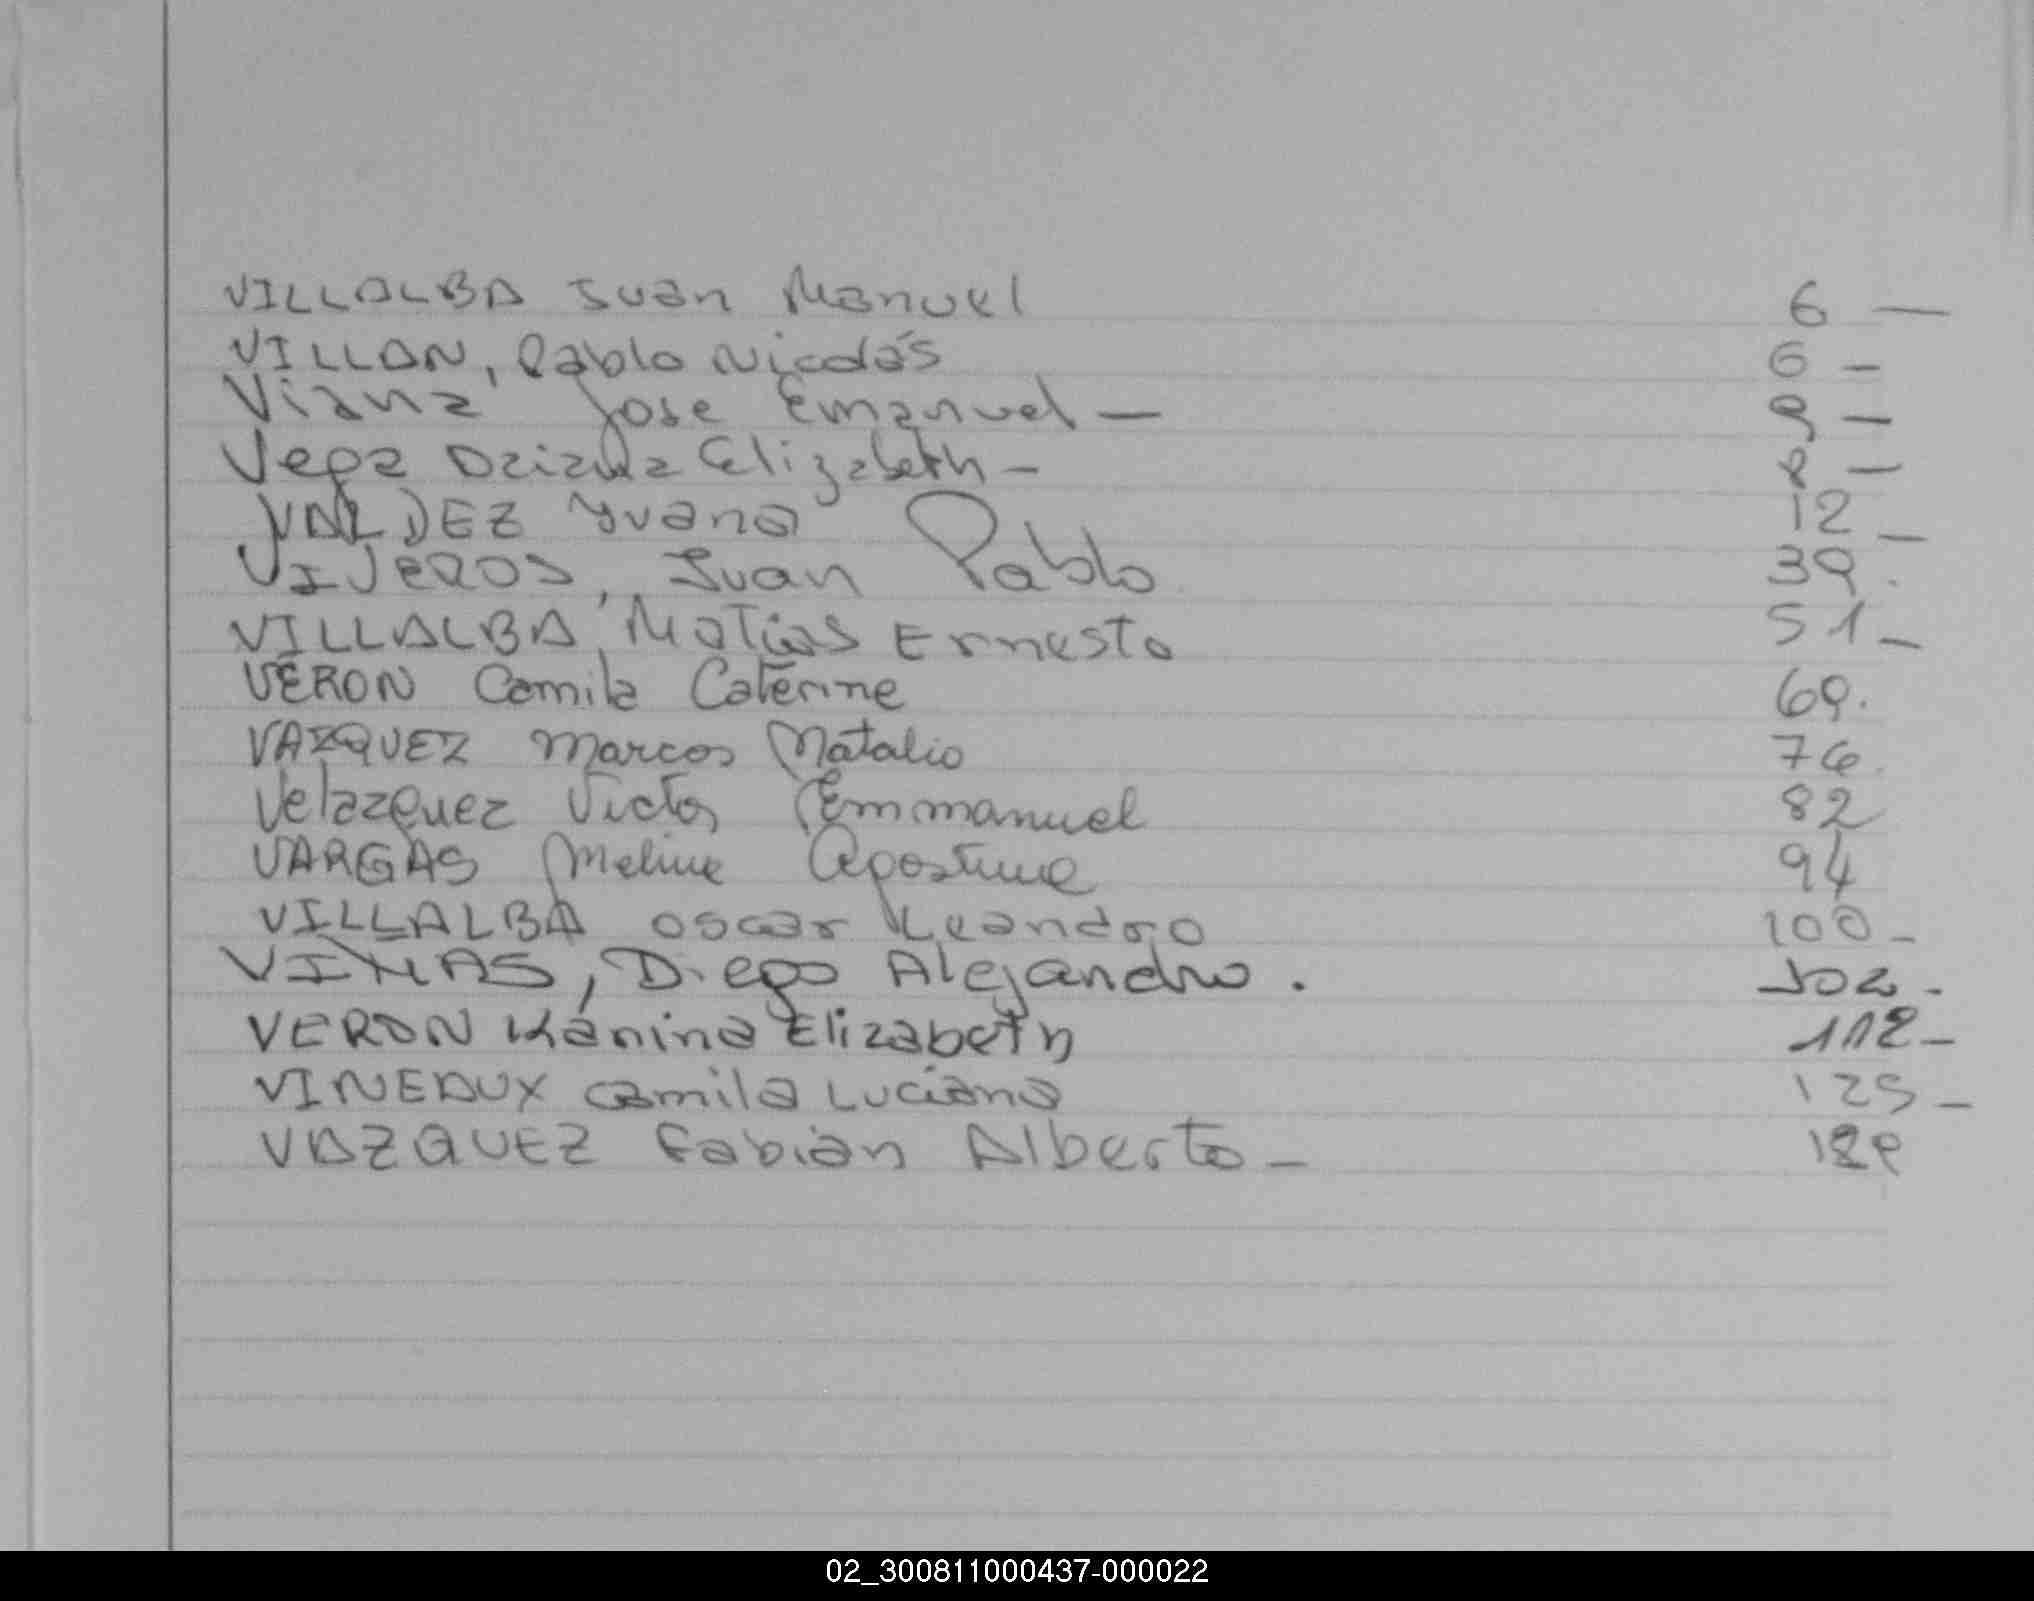 VILLALBA Juan Manuel 6 —
VILLAN, Pablo Nicolás 6 –
Viana Jose Emanuel — 9 –
Vega Daiana Elizabeth – 8 –
VALDEZ Yvana 12 –
VIJEROS, Juan Pablo 39.
VILLALBA, Matías Ernesto 51 –
VERON Camila Caterine 69.
VAZQUEZ Marcos Natalio 76.
Velazquez Victor Emmanuel 82
VARGAS Meline Agostina 94
VILLALBA Oscar Leandro 100 –
VIÑAS, Diego Alejandro. 102 –
VERON Kanina Elizabeth 112 –
VINEAUX Camila Luciana 125 –
VAZQUEZ Fabian Alberto –
02_300811000437-000022